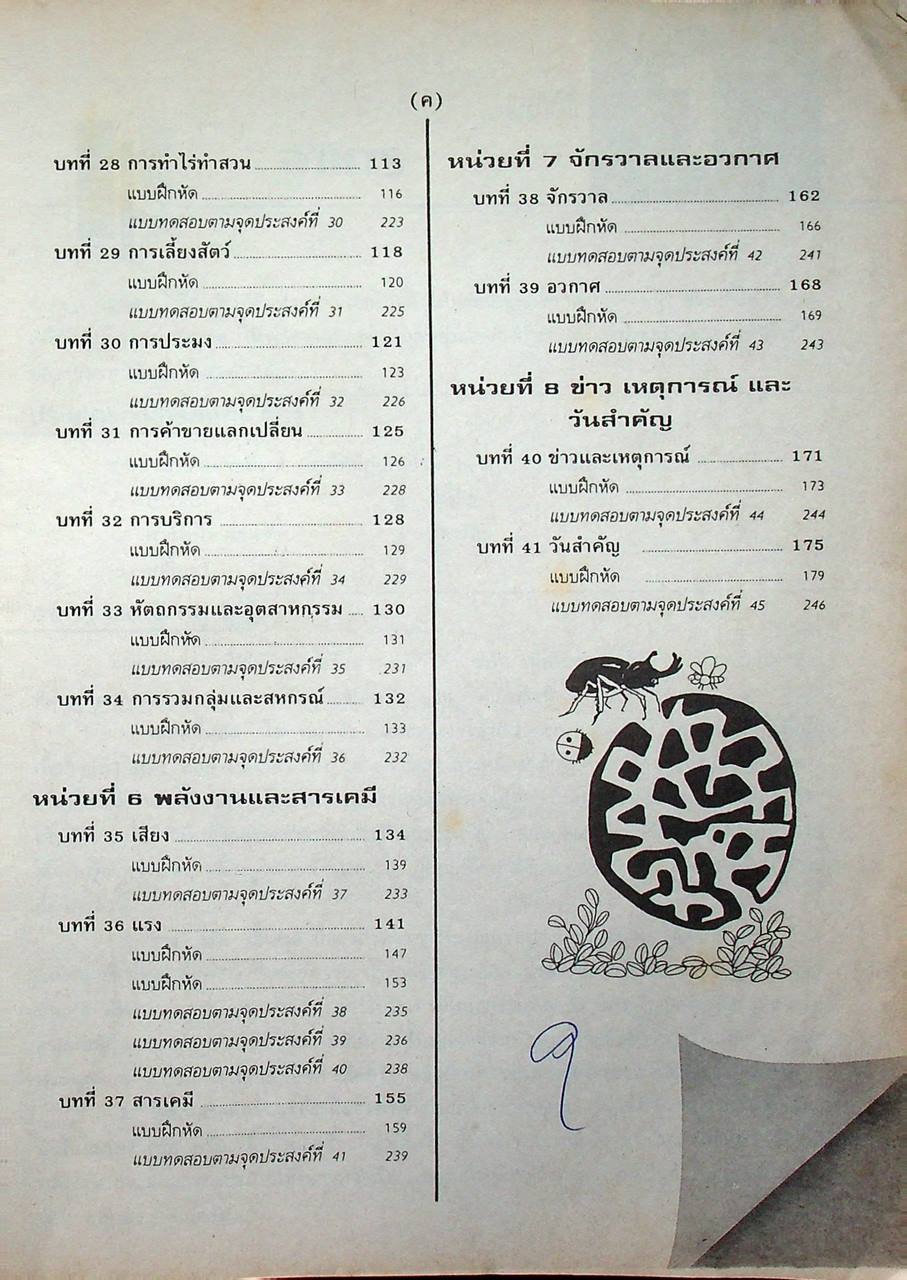 (ค)
บทที่ 28 การทำไร่ทำสวน 113
แบบฝึกหัด 116
แบบทดสอบตามจุดประสงค์ที่ 30 223
บทที่ 29 การเลี้ยงสัตว์ 118
แบบฝึกหัด 120
แบบทดสอบตามจุดประสงค์ที่ 31 225
บทที่ 30 การประมง 121
แบบฝึกหัด 123
แบบทดสอบตามจุดประสงค์ที่ 32 226
บทที่ 31 การค้าขายแลกเปลี่ยน 125
แบบฝึกหัด 126
แบบทดสอบตามจุดประสงค์ที่ 33 228
บทที่ 32 การบริการ 128
แบบฝึกหัด 129
แบบทดสอบตามจุดประสงค์ที่ 34 229
บทที่ 33 หัตถกรรมและอุตสาหกรรม 130
แบบฝึกหัด 131
แบบทดสอบตามจุดประสงค์ที่ 35 231
บทที่ 34 การรวมกลุ่มและสหกรณ์ 132
แบบฝึกหัด 133
แบบทดสอบตามจุดประสงค์ที่ 36 232
หน่วยที่ 6 พลังงานและสารเคมี
บทที่ 35 เสียง 134
แบบฝึกหัด 139
แบบทดสอบตามจุดประสงค์ที่ 37 233
บทที่ 36 แรง 141
แบบฝึกหัด 147
แบบฝึกหัด 153
แบบทดสอบตามจุดประสงค์ที่ 38 235
แบบทดสอบตามจุดประสงค์ที่ 39 236
แบบทดสอบตามจุดประสงค์ที่ 40 238
บทที่ 37 สารเคมี 155
แบบฝึกหัด 159
แบบทดสอบตามจุดประสงค์ที่ 41 239
หน่วยที่ 7 จักรวาลและอวกาศ
บทที่ 38 จักรวาล 162
แบบฝึกหัด 166
แบบทดสอบตามจุดประสงค์ที่ 42 241
บทที่ 39 อวกาศ 168
แบบฝึกหัด 169
แบบทดสอบตามจุดประสงค์ที่ 43 243
หน่วยที่ 8 ข่าว เหตุการณ์ และ
วันสำคัญ
บทที่ 40 ข่าวและเหตุการณ์ 171
แบบฝึกหัด 173
แบบทดสอบตามจุดประสงค์ที่ 44 244
บทที่ 41 วันสำคัญ 175
แบบฝึกหัด 179
แบบทดสอบตามจุดประสงค์ที่ 45 246